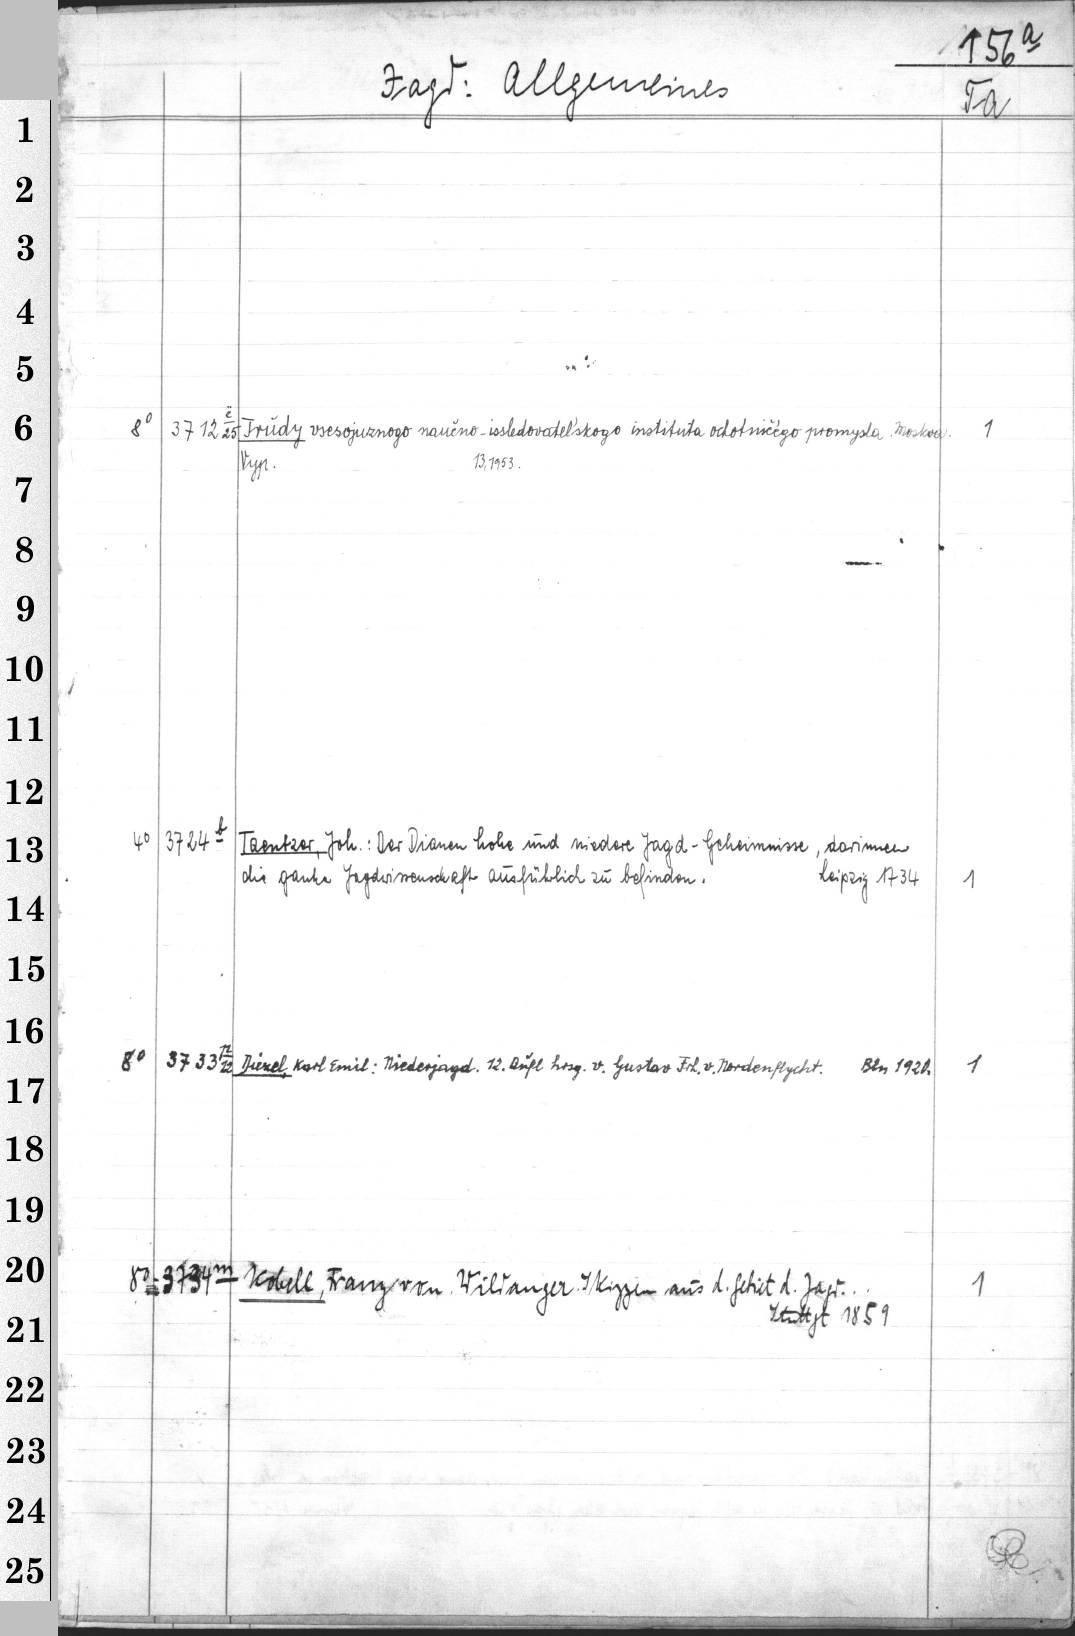 156a
Jagd: Allgemeines
Ta
1
2
3
4
5
6
8° 3712 č/25 Trudy vsesojuznogo naučno-issledovatel'skogo instituta ochotnič'ego promysla. Moskva. 1
Vyp. 13, 1953.
7
8
9
10
11
12
13
4° 3724 b Taentzer, Joh.: Der Dianen hohe und niedere Jagd-Geheimnisse, darinnen
die gantze Jagdwissenschaft ausführlich zu befinden. Leipzig 1734 1
14
15
16
8° 3733 Diezel, Karl Emil: Niederjagd. 12. Aufl hrsg. v. Gustav Frh. v. Nordenflycht. Bln 1920. 1
17
18
19
20
8° 3734 m Kobell, Franz von. Wildanger. Skizzen aus d. Gebiet d. Jagd... 1
Stuttgt 1859
21
22
23
24
25